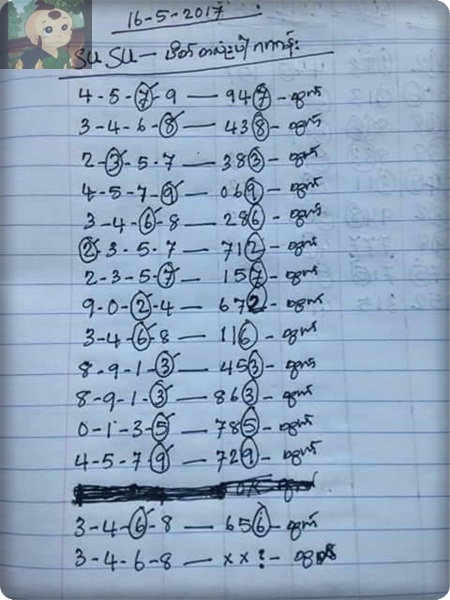 16-5-2017
SU SU — ဂဏန်း
4-5-7-9 — 947 - ထွက်
3-4-6-8 — 438 - ထွက်
2-3-5-7 — 383 - ထွက်
4-5-7-9 — 069 - ထွက်
3-4-6-8 — 286 - ထွက်
2-3-5-7 — 712 - ထွက်
2-3-5-7 — 157 - ထွက်
9-0-2-4 — 672 - ထွက်
3-4-6-8 — 116 - ထွက်
8-9-1-3 — 453 - ထွက်
8-9-1-3 — 863 - ထွက်
0-1-3-5 — 785 - ထွက်
4-5-7-9 — 729 - ထွက်
3-4-6-8 — 656 - ထွက်
3-4-6-8 — xx? -